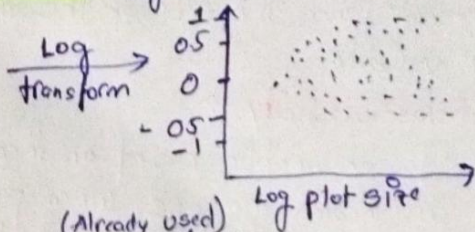 1
Log
transform
05
0
- 05
-1
Log plot size
(Already used)